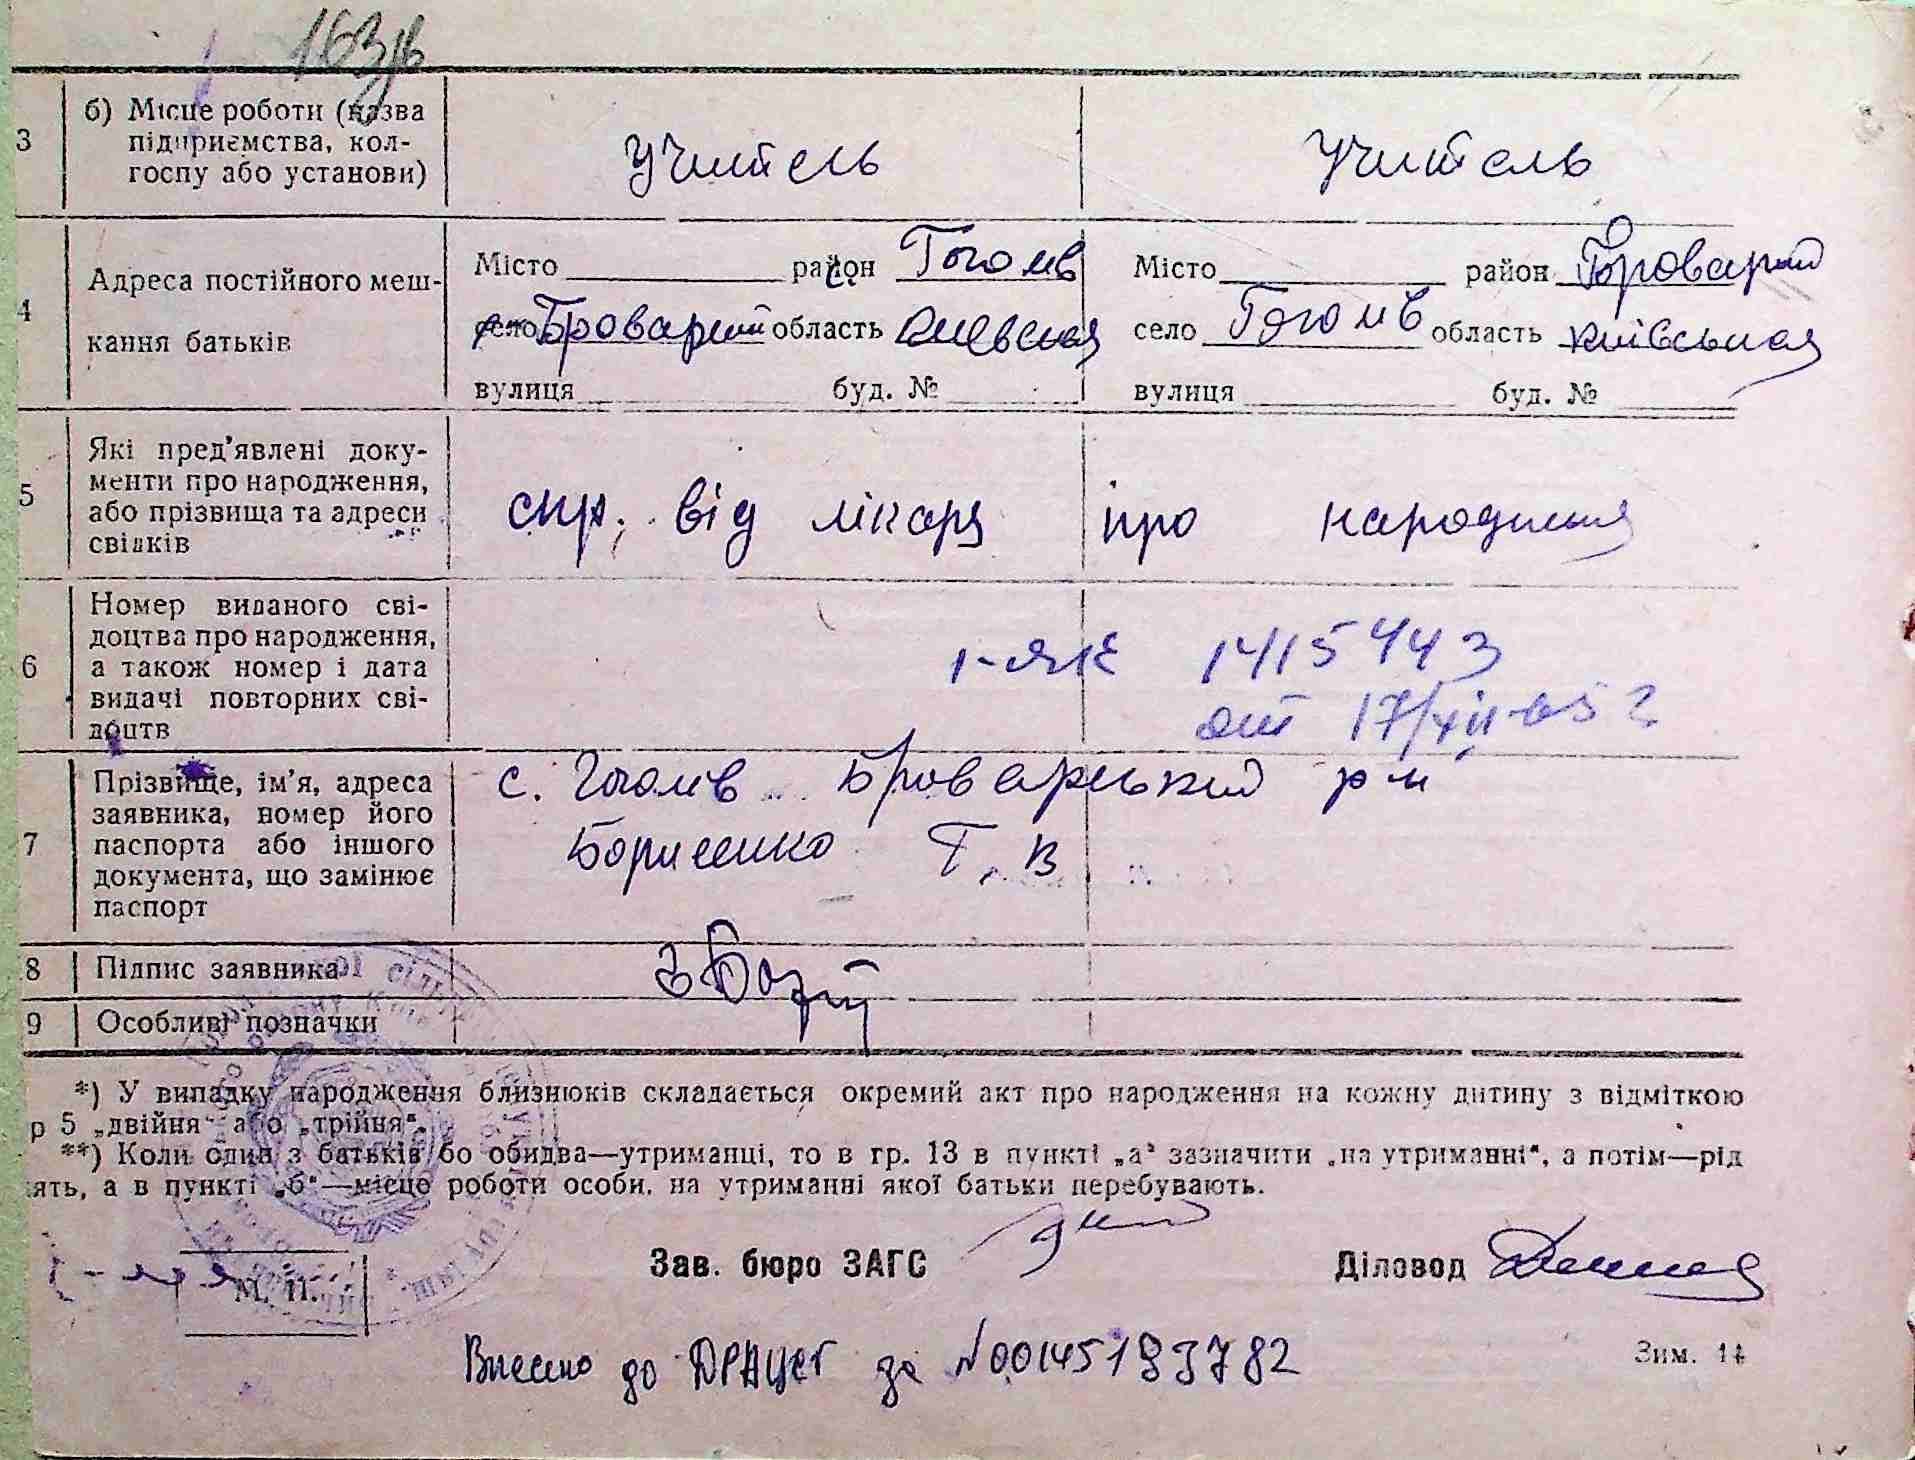 163зв
3 б) Місце роботи (назва підприємства, кол-госпу або установи) Учитель Учитель
Місто район Гоголів Місто район Броварський
4 Адреса постійного меш-
село Броварський область Киевская село Гоголів область Київськая
кання батьків
вулиця буд. № вулиця буд. №
Які пред'явлені доку-
5 менти про народження,
або прізвища та адреси спр. від лікаря про народження
свідків
Номер виданого сві-
доцтва про народження, 1-ЯК 1415443
6 а також номер і дата
видачі повторних сві- от 17/XII-65 г
доцтв
Прізвище, ім'я, адреса с. Гоголів Броварський р-н
заявника, номер його
7 паспорта або іншого Борисенко Г. В
документа, що замінює
паспорт
8 Підпис заявника
9 Особливі позначки
*) У випадку народження близнюків складається окремий акт про народження на кожну дитину з відміткою
р 5 „двійня“ або „трійня“.
**) Коли один з батьків бо обидва—утриманці, то в гр. 13 в пункті „а“ зазначити „на утриманні“, а потім—рід
ять, а в пункті „б“—місце роботи особи, на утриманні якої батьки перебувають.
Зав. бюро ЗАГС Діловод
М. П.
Внесено до ДРАЦСГ за №00145193782
Зим. 14